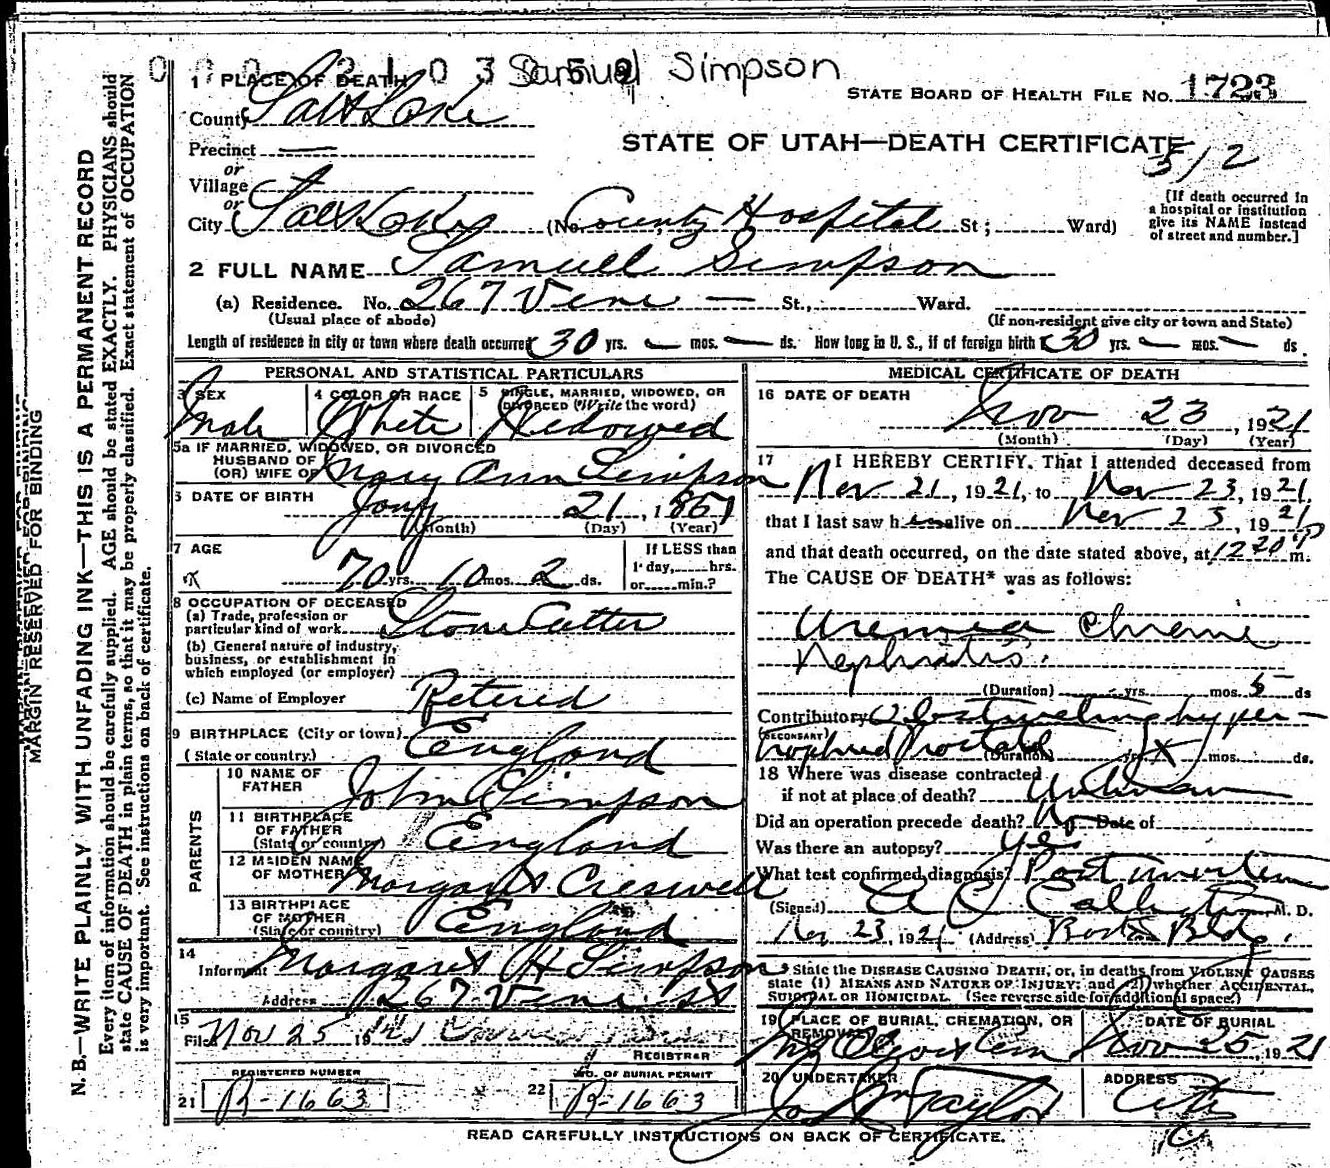 Samuel Simpson
1 PLACE OF DEATH
STATE BOARD OF HEALTH FILE NO. 1723
County Salt Lake
STATE OF UTAH—DEATH CERTIFICATE
Precinct
312
or
Village
or
City Salt Lake (No. County Hospital St; Ward)
[If death occurred in
a hospital or institution
give its NAME instead
of street and number.]
2 FULL NAME Samuel Simpson
(a) Residence. No. 267 Vine St., Ward.
(Usual place of abode) (If non-resident give city or town and State)
Length of residence in city or town where death occurred 30 yrs. — mos. — ds. How long in U. S., if of foreign birth 30 yrs. — mos. — ds.
PERSONAL AND STATISTICAL PARTICULARS
3 SEX
Male
4 COLOR OR RACE
White
5 SINGLE, MARRIED, WIDOWED, OR
DIVORCED (Write the word)
Widowed
5a IF MARRIED, WIDOWED, OR DIVORCED
HUSBAND OF
(OR) WIFE OF Mary Ann Simpson
6 DATE OF BIRTH Jany 21, 1851
(Month) (Day) (Year)
7 AGE
70 yrs. 10 mos. 2 ds.
If LESS than
1 day, hrs.
or min.?
8 OCCUPATION OF DECEASED
(a) Trade, profession or
particular kind of work Stone Cutter
(b) General nature of industry,
business, or establishment in
which employed (or employer)
(c) Name of Employer Retered
9 BIRTHPLACE (City or town)
(State or country.) England
PARENTS
10 NAME OF
FATHER John Simpson
11 BIRTHPLACE
OF FATHER
(State or country) England
12 MAIDEN NAME
OF MOTHER Margaret Creswell
13 BIRTHPLACE
OF MOTHER
(State or country) England
14
Informant Margaret H Simpson
Address 267 Vine St
15
Filed Nov 25 1921
REGISTRAR
REGISTERED NUMBER
21 R-1663
NO. OF BURIAL PERMIT
22 R-1663
MEDICAL CERTIFICATE OF DEATH
16 DATE OF DEATH
Nov 23, 1921
(Month) (Day) (Year)
17 I HEREBY CERTIFY, That I attended deceased from
Nov 21, 1921, to Nov 23, 1921,
that I last saw him alive on Nov 23, 1921
and that death occurred, on the date stated above, at 12 20 P m.
The CAUSE OF DEATH* was as follows:
Uremia Chronic
Nephritis.
(Duration) yrs. mos. 5 ds
Contributory Obstructing hyper-
(SECONDARY)
trophied Prostate
(Duration) yrs. X mos. ds.
18 Where was disease contracted
if not at place of death? Unknown
Did an operation precede death? No Date of
Was there an autopsy? Yes
What test confirmed diagnosis? Post mortem
(Signed) A C Callister M. D.
Nov 23, 1921 (Address) Boston Bldg.
* State the DISEASE CAUSING DEATH, or, in deaths from VIOLENT CAUSES
state (1) MEANS AND NATURE OF INJURY; and (2) whether ACCIDENTAL,
SUICIDAL OR HOMICIDAL. (See reverse side for additional space.)
19 PLACE OF BURIAL, CREMATION, OR
REMOVAL
Mt Olivet Cem
DATE OF BURIAL
Nov 25, 1921
20 UNDERTAKER
Jos Wm Taylor
ADDRESS
City
READ CAREFULLY INSTRUCTIONS ON BACK OF CERTIFICATE.
MARGIN RESERVED FOR BINDING
N. B.—WRITE PLAINLY WITH UNFADING INK—THIS IS A PERMANENT RECORD
Every item of information should be carefully supplied. AGE should be stated EXACTLY. PHYSICIANS should
state CAUSE OF DEATH in plain terms, so that it may be properly classified. Exact statement of OCCUPATION
is very important. See instructions on back of certificate.